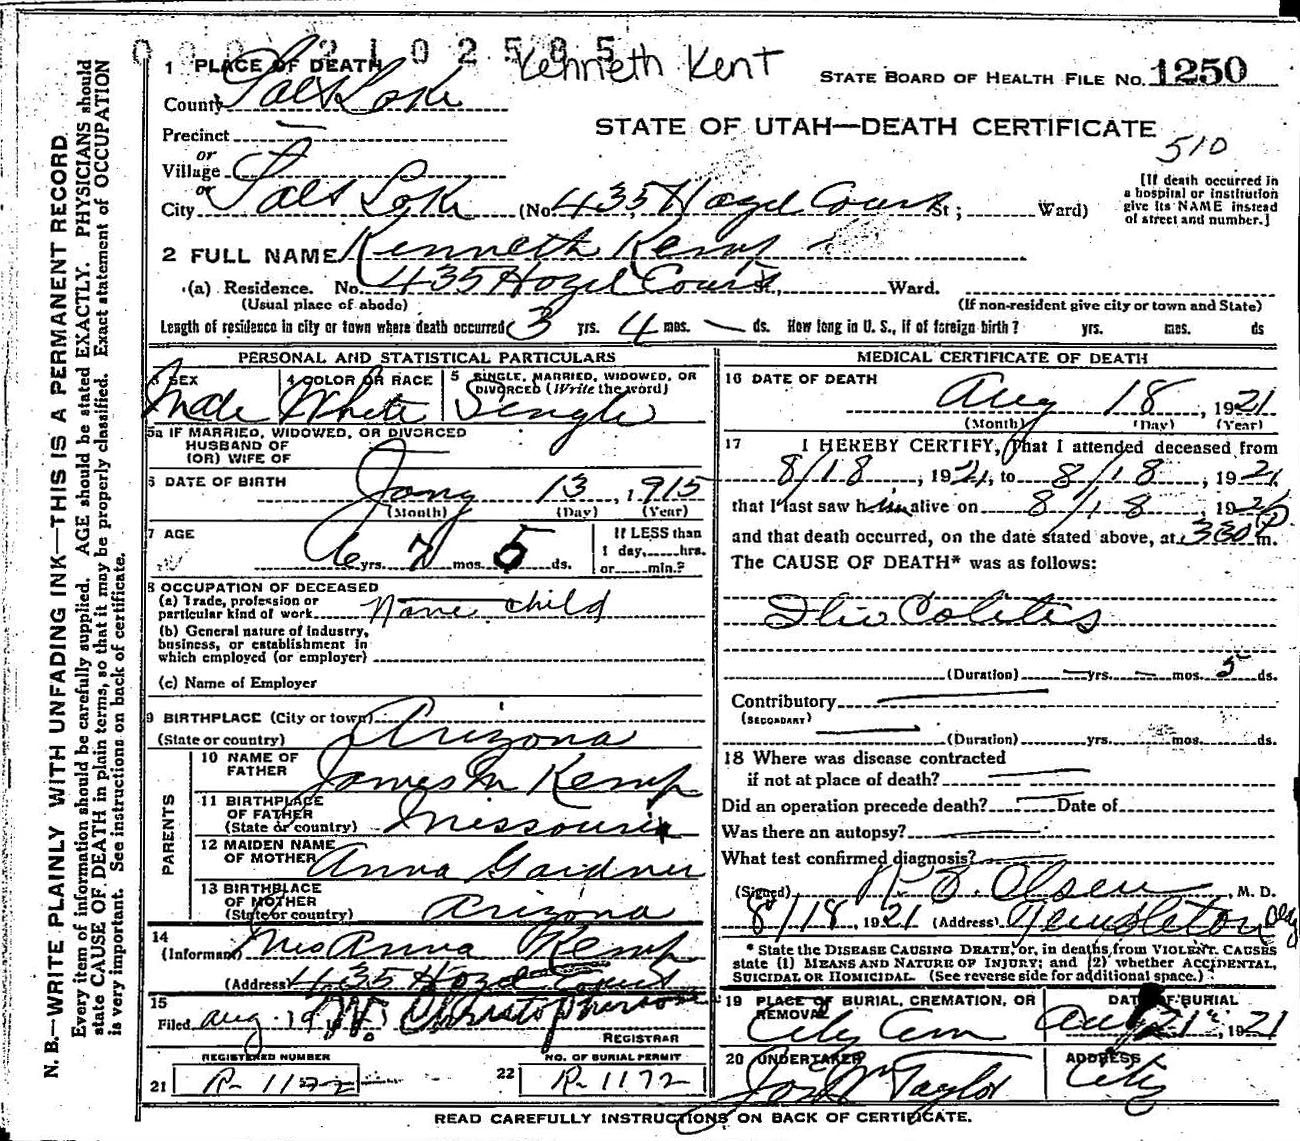 0002102585
Kenneth Kent
1 PLACE OF DEATH
STATE BOARD OF HEALTH FILE No. 1250
County Salt Lake
STATE OF UTAH—DEATH CERTIFICATE
Precinct
510
or
Village
or
City Salt Lake (No. 435 Hazel Court St; Ward)
[If death occurred in a hospital or institution give its NAME instead of street and number.]
2 FULL NAME Kenneth Kemp
(a) Residence. No. 435 Hazel Court, Ward.
(Usual place of abode) (If non-resident give city or town and State)
Length of residence in city or town where death occurred 3 yrs. 4 mos. — ds. How long in U. S., if of foreign birth? yrs. mos. ds
PERSONAL AND STATISTICAL PARTICULARS
3 SEX Male
4 COLOR OR RACE White
5 SINGLE, MARRIED, WIDOWED, OR DIVORCED (Write the word) Single
5a IF MARRIED, WIDOWED, OR DIVORCED
HUSBAND OF
(OR) WIFE OF
6 DATE OF BIRTH Jany 13, 1915
(Month) (Day) (Year)
7 AGE 6 yrs. 7 mos. 5 ds.
If LESS than 1 day, hrs. or min.?
8 OCCUPATION OF DECEASED
(a) Trade, profession or particular kind of work None child
(b) General nature of industry, business, or establishment in which employed (or employer)
(c) Name of Employer
9 BIRTHPLACE (City or town)
(State or country) Arizona
PARENTS
10 NAME OF FATHER James M Kemp
11 BIRTHPLACE OF FATHER (State or country) Missouri
12 MAIDEN NAME OF MOTHER Anna Gardner
13 BIRTHPLACE OF MOTHER (State or country) Arizona
14
(Informant) Mrs Anna Kemp
(Address) 435 Hazel Court
15
Filed Aug. 19 W. Christopherson
REGISTRAR
REGISTERED NUMBER
21 R-1172
NO. OF BURIAL PERMIT
22 R-1172
MEDICAL CERTIFICATE OF DEATH
16 DATE OF DEATH
Aug 18, 1921
(Month) (Day) (Year)
17 I HEREBY CERTIFY, That I attended deceased from
8/18, 1921, to 8/18, 1921
that I last saw him alive on 8/18, 1921
and that death occurred, on the date stated above, at 330 P m.
The CAUSE OF DEATH* was as follows:
Ilio Colitis
(Duration) — yrs. — mos. 5 ds.
Contributory
(SECONDARY)
(Duration) yrs. mos. ds.
18 Where was disease contracted
if not at place of death?
Did an operation precede death? Date of
Was there an autopsy?
What test confirmed diagnosis?
(Signed) Olsen, M. D.
8/18, 1921 (Address) Pendleton
* State the DISEASE CAUSING DEATH, or, in deaths from VIOLENT CAUSES
state (1) MEANS AND NATURE OF INJURY; and (2) whether ACCIDENTAL,
SUICIDAL OR HOMICIDAL. (See reverse side for additional space.)
19 PLACE OF BURIAL, CREMATION, OR REMOVAL
City Cem
DATE OF BURIAL
Aug 21, 1921
20 UNDERTAKER
Jos Wm Taylor
ADDRESS
City
READ CAREFULLY INSTRUCTIONS ON BACK OF CERTIFICATE.
N. B.—WRITE PLAINLY WITH UNFADING INK—THIS IS A PERMANENT RECORD
Every item of information should be carefully supplied. AGE should be stated EXACTLY. PHYSICIANS should
state CAUSE OF DEATH in plain terms, so that it may be properly classified. Exact statement of OCCUPATION
is very important. See instructions on back of certificate.